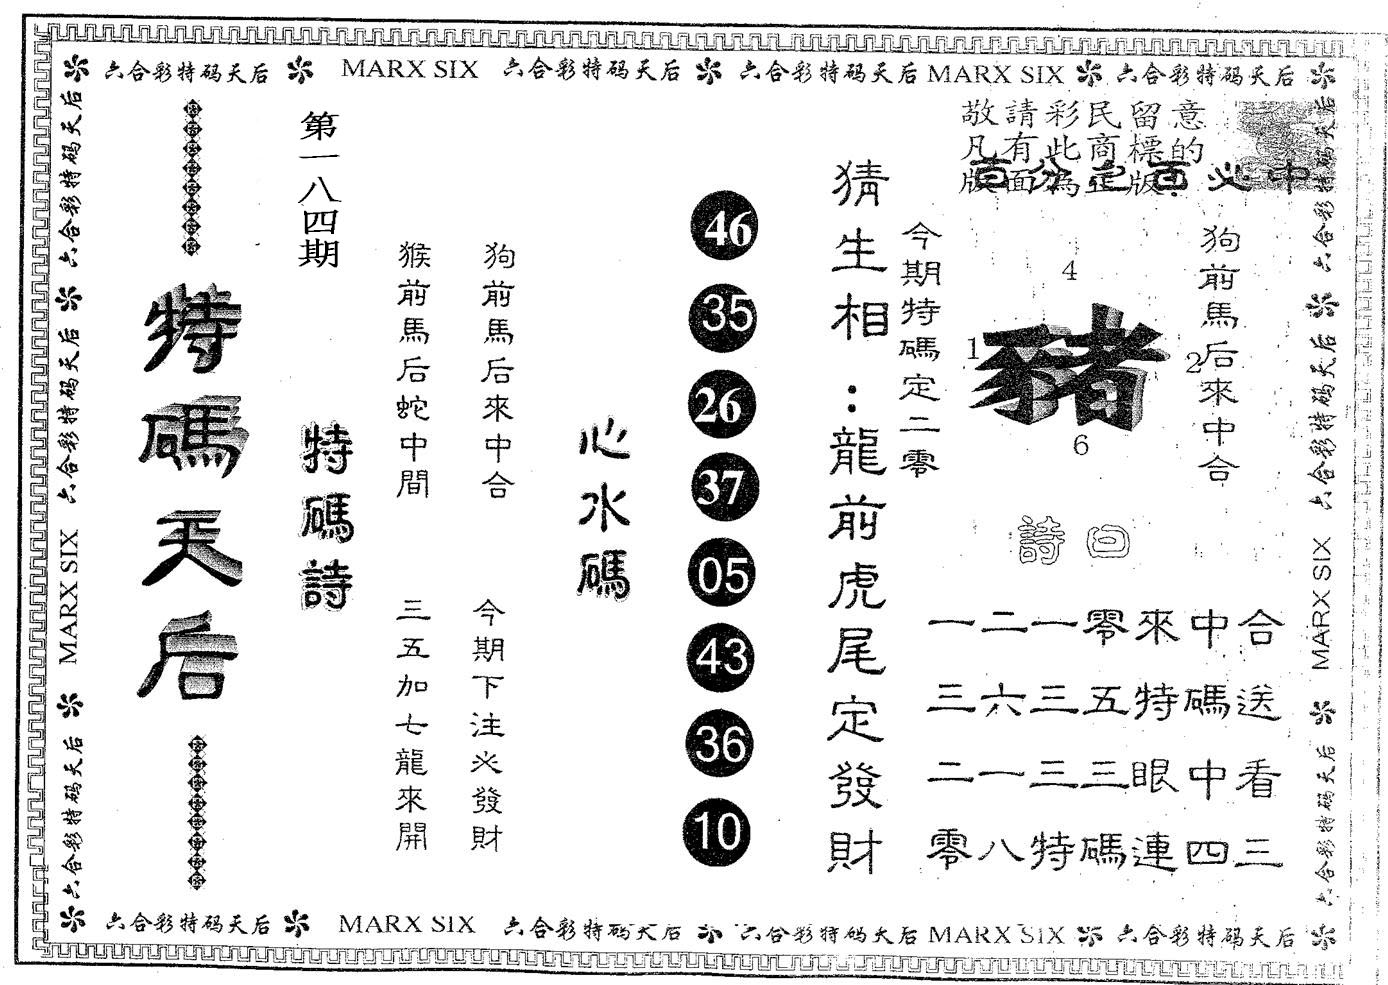 六合彩特码天后 MARX SIX 六合彩特码天后 六合彩特码天后 MARX SIX 六合彩特码天后
六合彩特码天后 六合彩特码天后 MARX SIX 六合彩特码天后
特碼天后
第一八四期
特碼詩
猴前馬后蛇中間
三五加七龍來開
狗前馬后來中合
今期下注必發財
心水碼
46
35
26
37
05
43
36
10
猜生相：龍前虎尾定發財
敬請彩民留意
凡有此商標的
版面為正版
百分之百必中
今期特碼定二零
4
1 豬 2
6
狗前馬后來中合
詩曰
一二一零來中合
三六三五特碼送
二一三三眼中看
零八特碼連四三
六合彩特码天后 六合彩特码天后 MARX SIX 六合彩特码天后
六合彩特码天后 MARX SIX 六合彩特码天后 六合彩特码天后 MARX SIX 六合彩特码天后